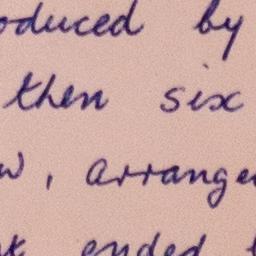 oduced by
then six
w, arrange
ended